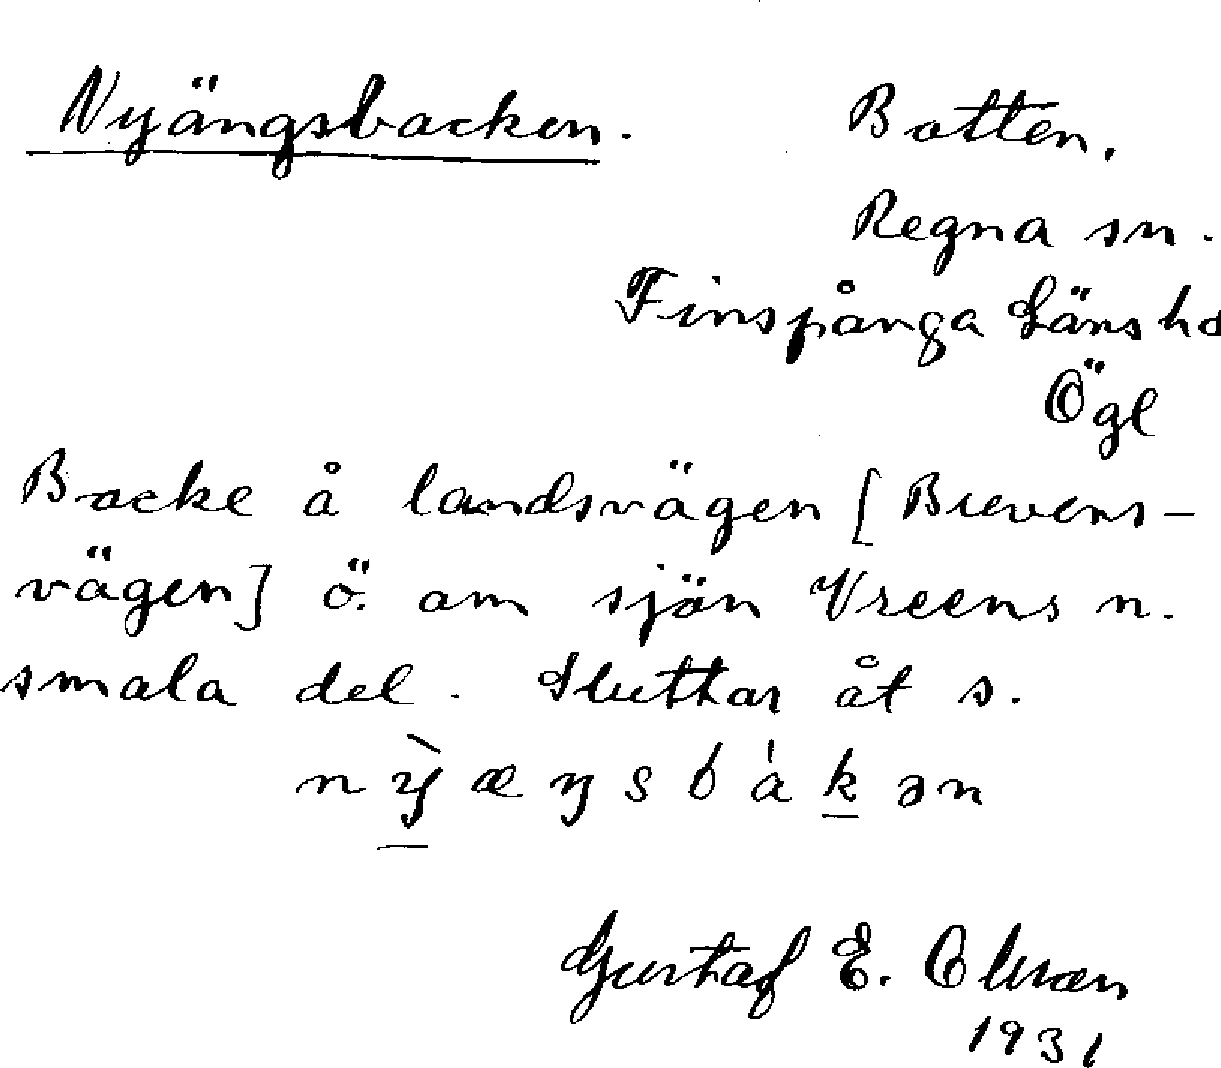 Nyängsbacken.
Botten.
Regna sn.
Finspånga Länshd
Ögl
Backe å landsvägen [Brevens-
vägen] ö. om sjön Vreens n.
smala del. Sluttar åt s.
nỳæŋsbákən
Gustaf E. Olsson
1931